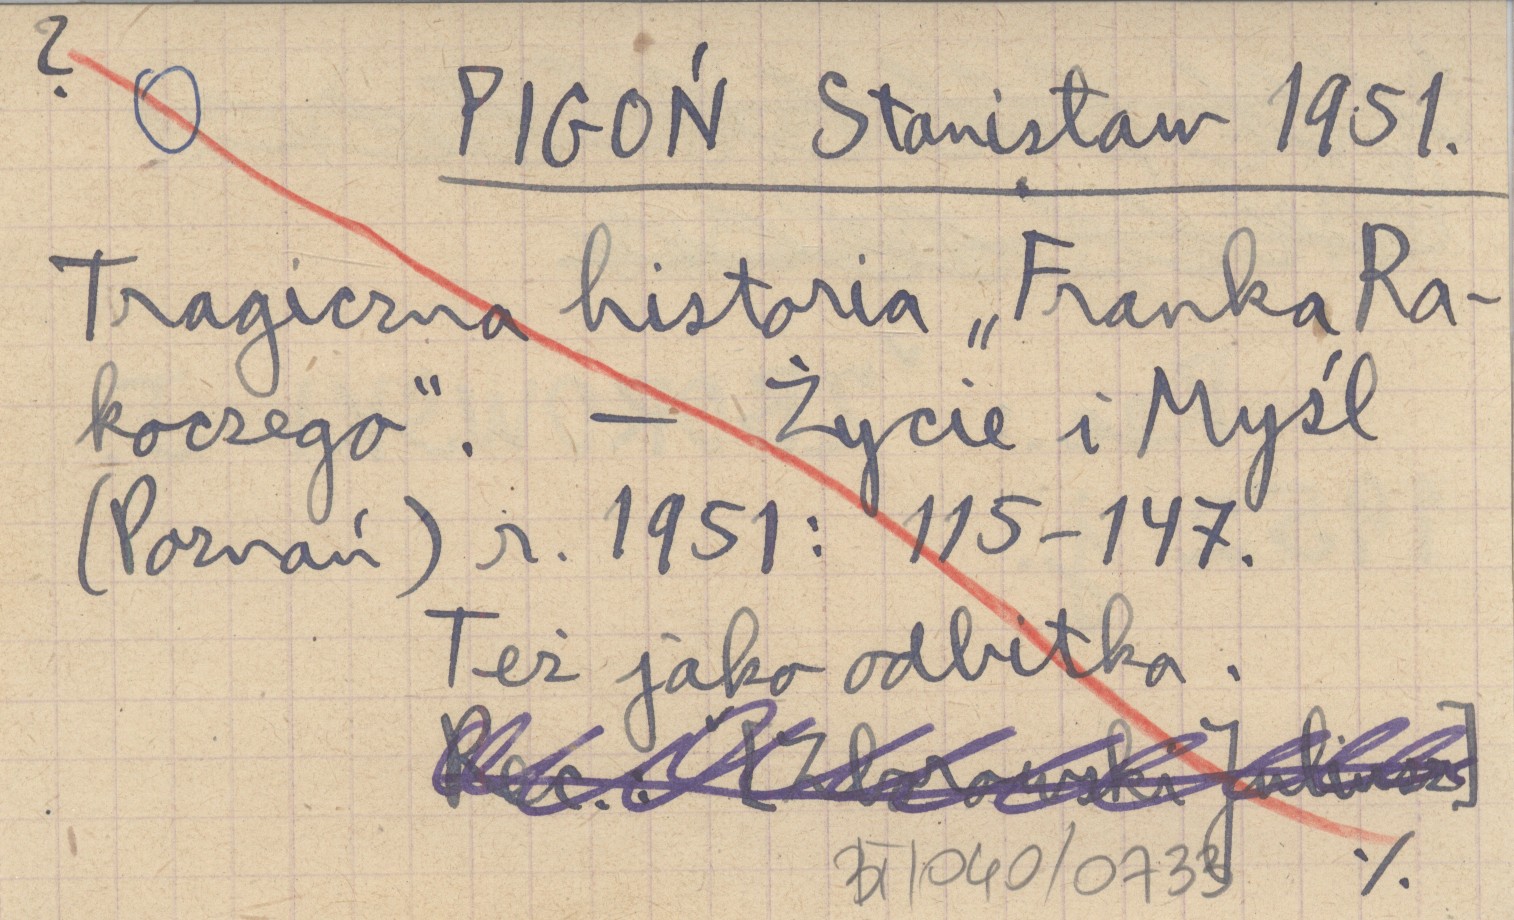 ?
PIGOŃ Stanisław 1951.
Tragiczna historia „Franka Ra-
koczego“. — Życie i Myśl
(Poznań) r. 1951: 115-147.
Też jako odbitka.
Rec.: [Zborowski Juliusz]
/040/0733
·/.